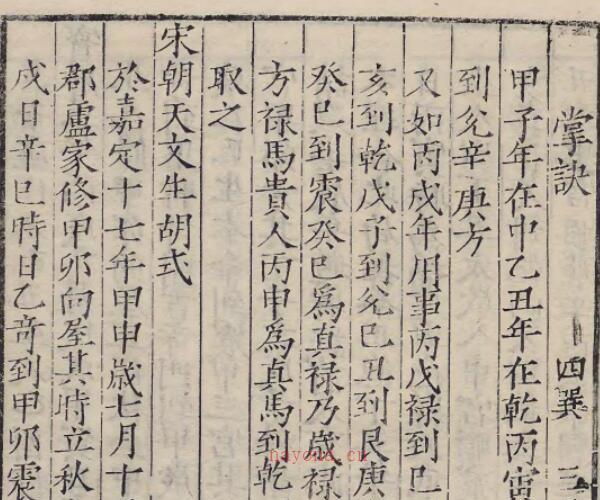 掌訣 四巽 三
甲子年在中乙丑年在乾丙寅
到兊辛庚方
又如丙戌年用事丙戊禄到巳
亥到乾戊子到兊巳丑到艮庚
癸巳到震癸巳爲真禄乃歲禄
方禄馬貴人丙申爲真馬到乾
取之
宋朝天文生胡式
於嘉定十七年甲申歲七月十
郡盧家修甲卯向屋其時立秋
戌日辛巳時日乙奇到甲卯震
nayona.cn